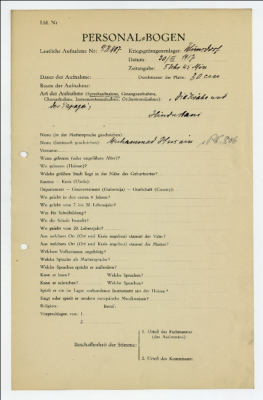 Lfd. Nr.
PERSONAL-BOGEN
Lautliche Aufnahme Nr.: Kriegsgefangenenlager:
Datum:
Zeitangabe:
Dauer der Aufnahme: Durchmesser der Platte: 30 cm
Raum der Aufnahme:
Art der Aufnahme (Sprechaufnahme, Gesangsaufnahme,
Choraufnahme, Instrumentenaufnahme, Orchesteraufnahme):
Hindustani
Name (in der Muttersprache geschrieben):
Name (lateinisch geschrieben): Muhammed Hussain
Vorname:
Wann geboren (oder ungefähres Alter)?
Wo geboren (Heimat)?
Welche größere Stadt liegt in der Nähe des Geburtsortes?
Kanton — Kreis (Ujedz):
Departement — Gouvernement (Gubernija) — Grafschaft (County):
Wo gelebt in den ersten 6 Jahren?
Wo gelebt vom 7. bis 20. Lebensjahr?
Was für Schulbildung?
Wo die Schule besucht?
Wo gelebt vom 20. Lebensjahr?
Aus welchem Ort (Ort und Kreis angeben) stammt der Vater?
Aus welchem Ort (Ort und Kreis angeben) stammt die Mutter?
Welchem Volksstamm angehörig?
Welche Sprache als Muttersprache?
Welche Sprachen spricht er außerdem?
Kann er lesen? Welche Sprachen?
Kann er schreiben? Welche Sprachen?
Spielt er ein im Lager vorhandenes Instrument aus der Heimat?
Singt oder spielt er modern europäische Musikweisen?
Religion: Beruf:
Vorgeschlagen von: 1.
2.
Beschaffenheit der Stimme:
1. Urteil des Fachmannes
(des Assistenten):
2. Urteil des Kommissars: